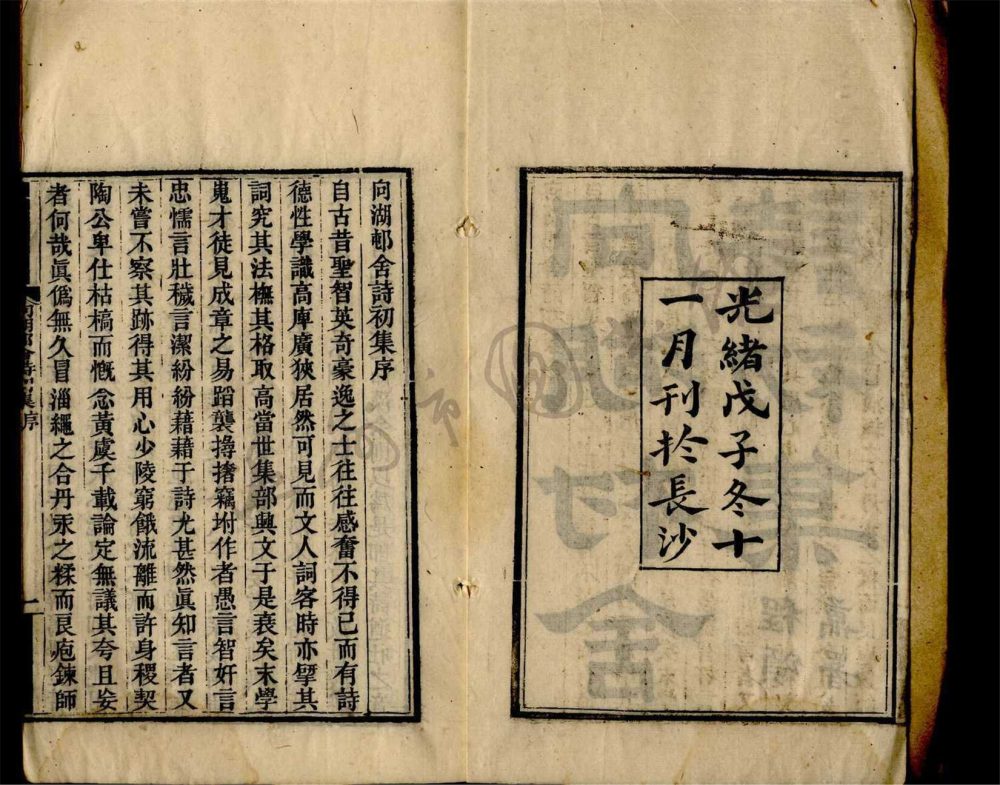 光緒戊子冬十
一月刊於長沙
向湖邨舍詩初集序
自古昔聖智英奇豪逸之士往往感奮不得已而有詩
德性學識高庳廣狹居然可見而文人詞客時亦擘其
詞究其法橅其格取高當世集部興文于是衰矣末學
嵬才徒見成章之易蹈襲撏撦竊坿作者愚言智奸言
忠懦言壯穢言潔紛紛藉藉于詩尤甚然眞知言者又
未嘗不察其跡得其用心少陵窮餓流離而許身稷契
陶公卑仕枯槁而慨念黃虞千載論定無議其夸且妄
者何哉眞僞無久冒淄繩之合丹汞之糅而艮庖鍊師